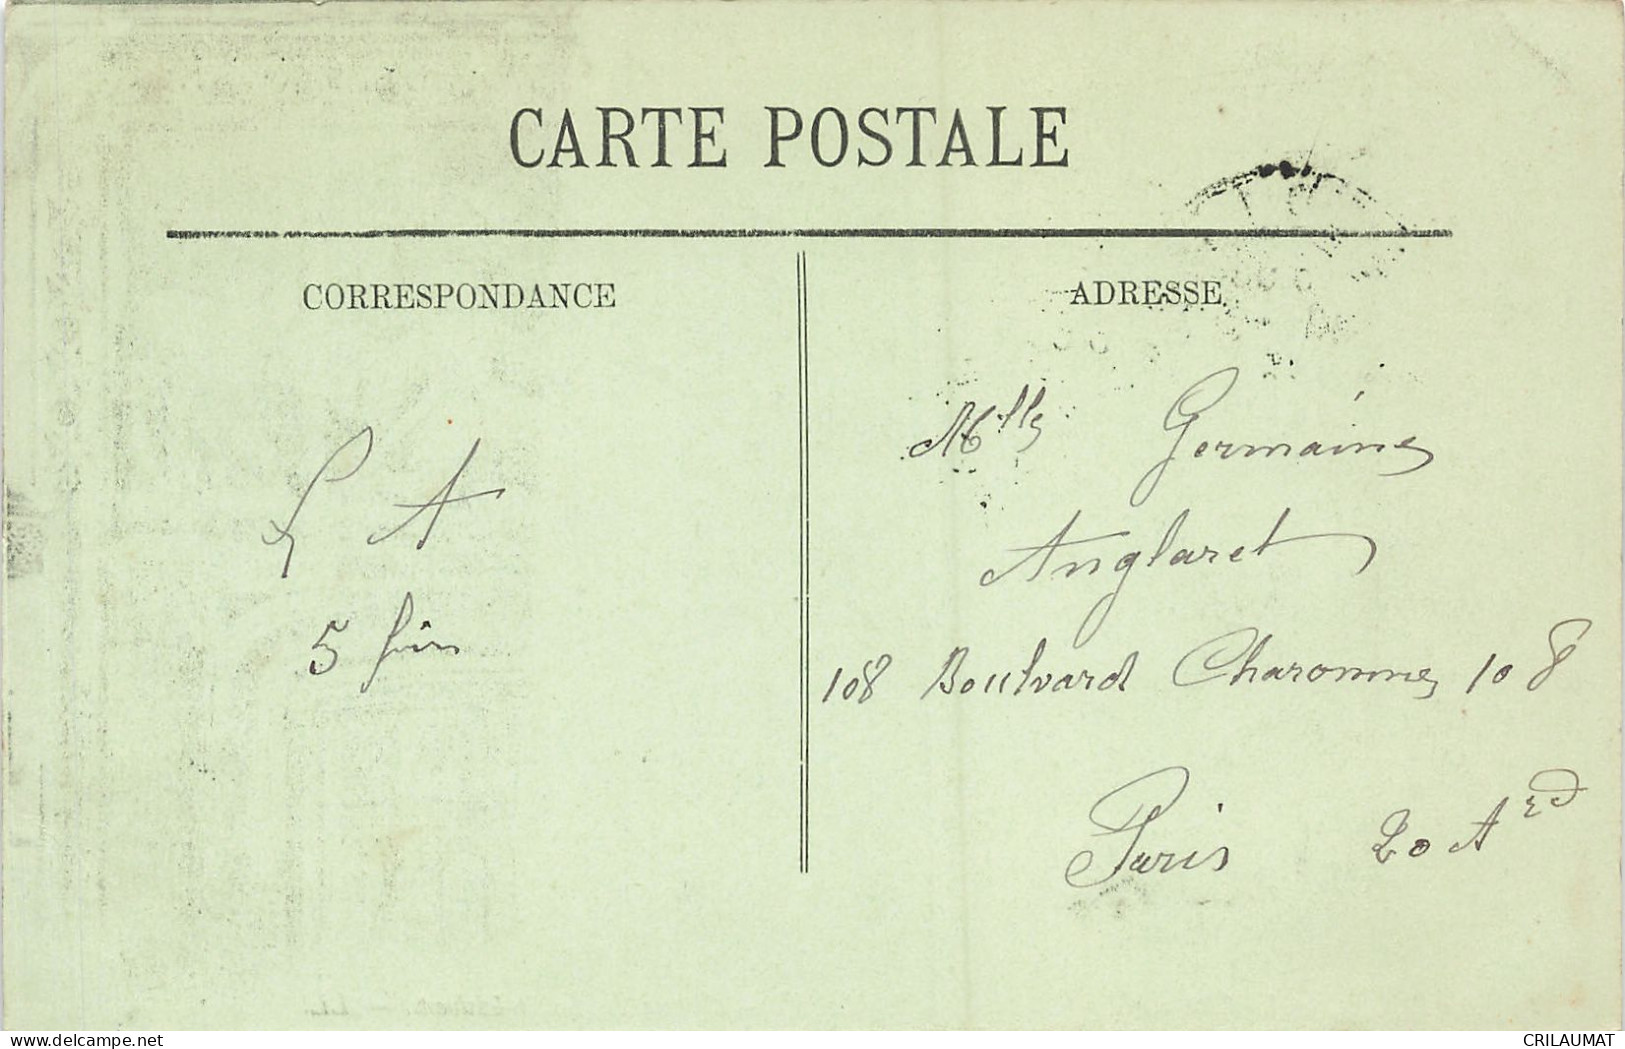 CARTE POSTALE
CORRESPONDANCE
ADRESSE
Mlle Germaine
Anglaret
108 Boulvard Charonne 108
Paris 20 Ard
A
5
delcampe.net
CRILAUMAT